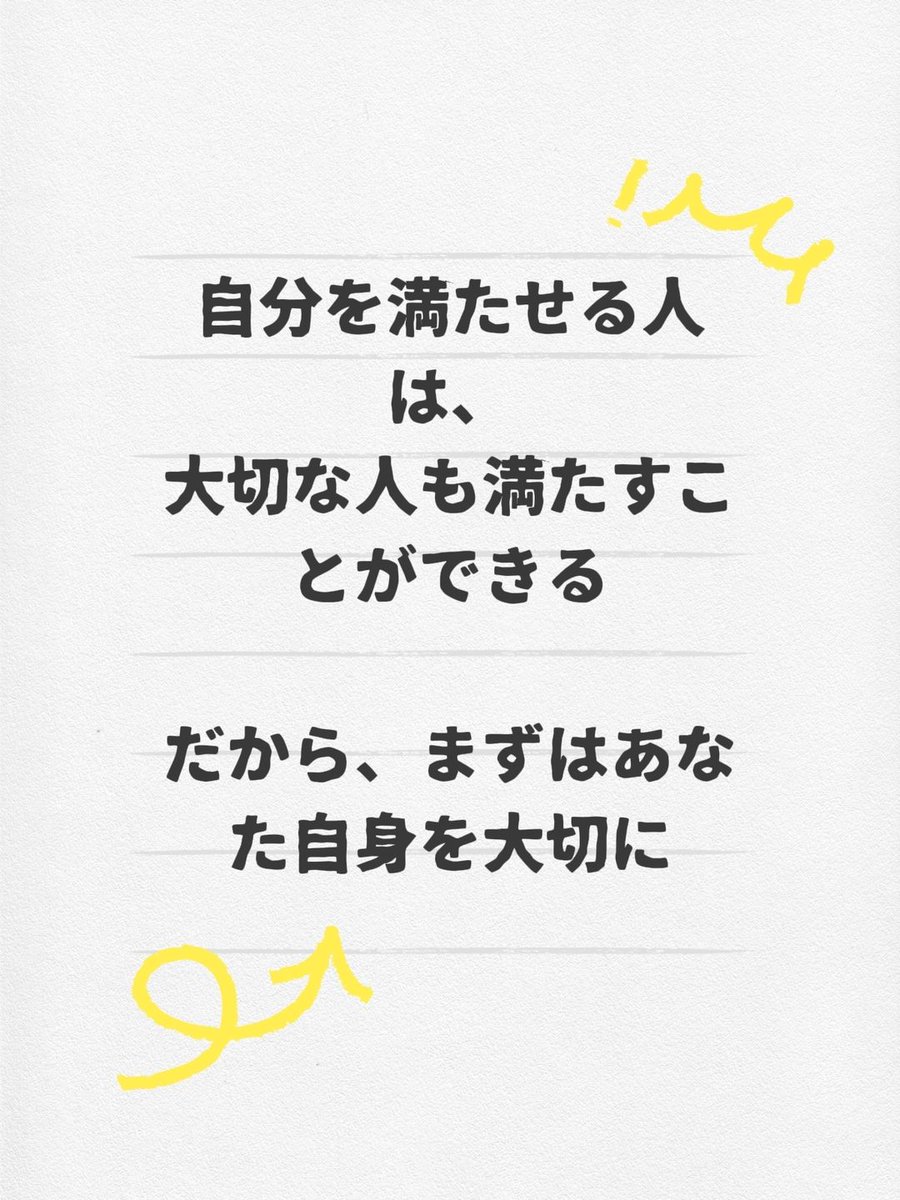 自分を満たせる人
は、
大切な人も満たすこ
とができる
だから、まずはあな
た自身を大切に